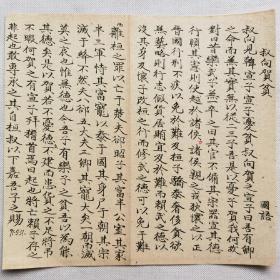 叔向賀貧
國語
叔向見韓宣子宣子憂貧叔向賀之宣子曰吾有卿
之名而無其實無以從二三子吾是以憂子賀我何故
對曰昔欒武子無一卒之田其官不備其宗器宣其德
行順其憲則使越於諸侯諸侯親之戎狄懷之以正
晉國行刑不疚以免於難及桓子驕泰奢侈貪欲
無藝略則行志假貸居賄宜及於難而賴武之德
以沒其身及懷子改桓之行而修武之德可以免於難
而離桓之罪以亡于楚夫郤昭子其富半公室其家
半三軍恃其富寵以泰于國其身尸于朝其宗
滅于絳不然夫八郤五大夫三卿其寵大矣一朝而滅
莫之哀也惟無德也今吾子有欒武子之貧吾以為能
其德矣是以賀若不憂德之不建而患貨之不足將弔
不暇何賀之有宣子拜稽首焉曰起也將亡賴子存之
非起也敢專承之其自桓叔以下嘉吾子之賜